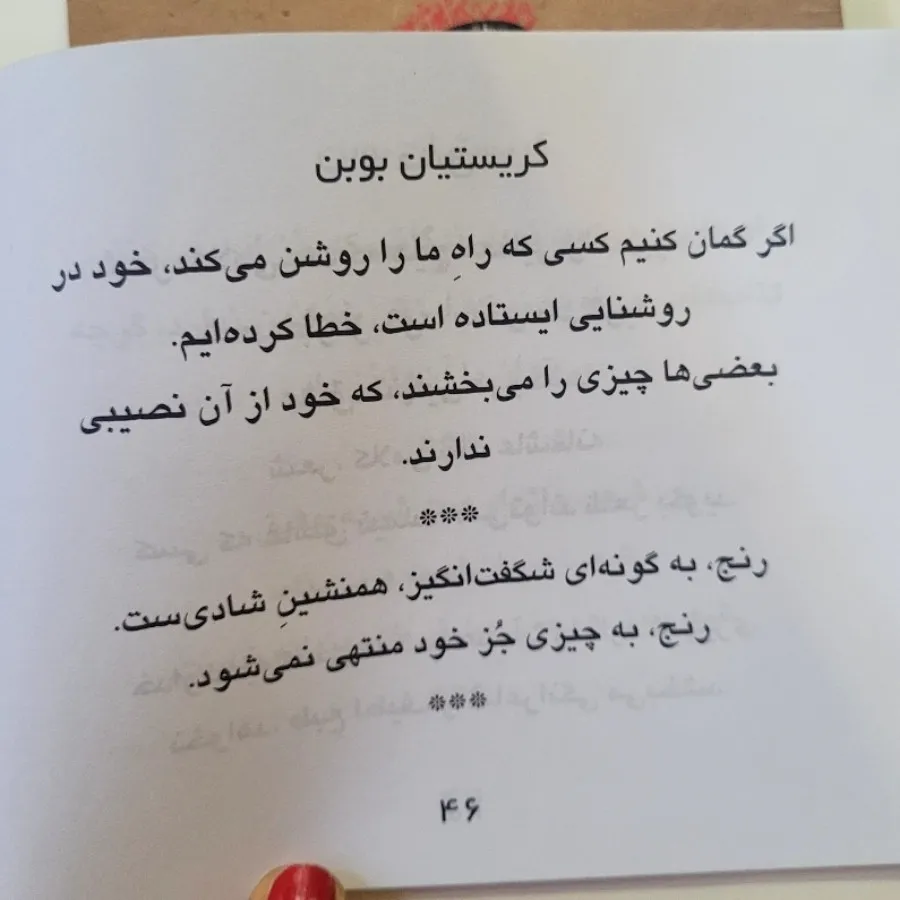 کریستیان بوبن
اگر گمان کنیم کسی که راهِ ما را روشن می‌کند، خود در
روشنایی ایستاده است، خطا کرده‌ایم.
بعضی‌ها چیزی را می‌بخشند، که خود از آن نصیبی
ندارند.
***
رنج، به گونه‌ای شگفت‌انگیز، همنشینِ شادی‌ست.
رنج، به چیزی جُز خود منتهی نمی‌شود.
***
۴۶